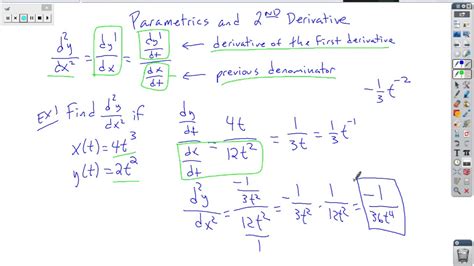 Parametrics and 2ND Derivative
d²y/dx² = dy'/dx = (dy'/dt)/(dx/dt) ← derivative of the first derivative
← previous denominator
-1/3 t⁻²
Ex1 Find d²y/dx² if
x(t) = 4t³
y(t) = 2t²
(dy/dt)/(dx/dt) = 4t/12t² = 1/3t = 1/3 t⁻¹
d²y/dx² = (-1/3t²)/(12t²/1) = -1/3t² · 1/12t² = -1/36t⁴